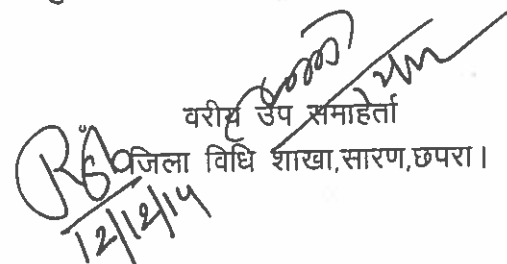 वरीय उप समाहर्ता
जिला विधि शाखा,सारण,छपरा।
12/12/14